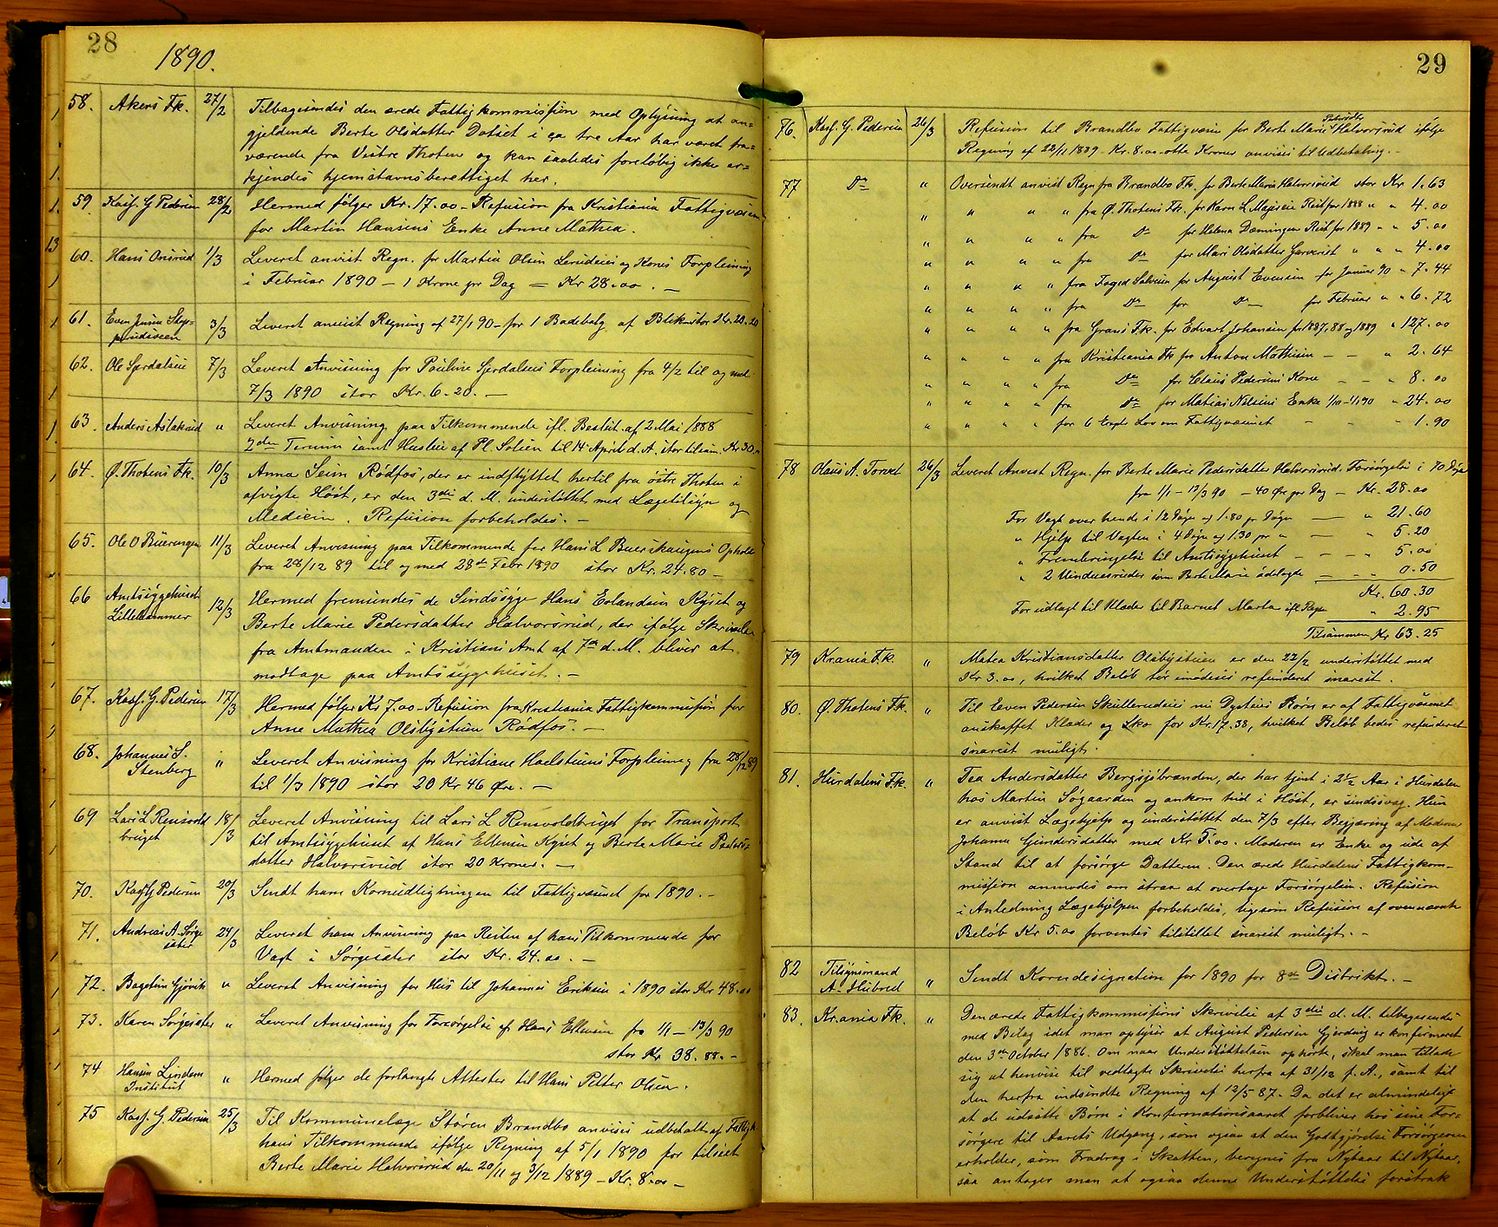 28
1890.
58. Akers Fk. 27/2 Tilbagesendes den ærede Fattigkommission med Oplysning at an=
gjeldende Berte Olsdatter Dotset i ca tre Aar har været fra=
værende fra Vestre Thoten og kan saaledes foreløbig ikke er=
kjendes hjemstavnsberettiget her.
59. Kasf. G Pedersen 28/2 Hermed følger Kr. 17.00 – Refusion fra Kristiania Fattigvæsen
for Martin Hansens Enke Anne Mathea.
60. Hans Onsrud 1/3 Leveret anvist Regn. for Martin Olsen og Kones Forpleining
i Februar 1890 – 1 Krone pr Dag = Kr 28.00. –
61. Even Jensen 3/3 Leveret anvist Regning af 27/1 90 – for 1 Badebalg af Blik stor Kr. 20.20
62. Ole Gjerdalen 7/3 Leveret Anvisning for Pauline Gjerdalens Forpleining fra 4/2 til og med
7/3 1890 stor Kr. 6.20. –
63. Anders Aslaksrud " Leveret Anvisning paa Tilkommende ifl. Beslut. af 2 Mai 1888
2den Termin samt Husleie af Pl. Solien til 14 April d. A. stor tilsam. Kr. 30.
64. Ø. Thotens Fk. 10/3 Anna Sein Rødfos, der er indflyttet hertil fra østre Thoten i
afvigte Høst, er den 3die d. M. understøttet med Lægetilsyn og
Medicin. Refusion forbeholdes. –
65. Ole O Buerengen 11/3 Leveret Anvisning paa Tilkommende for Hans L Buerskaugens Ophold
fra 28/12 89 til og med 28de Febr 1890 stor Kr. 24.80 –
66 Amtssygehuset
Lillehammer 12/3 Hermed fremsendes de Sindssyge Hans Erlandsen Kyset og
Berte Marie Pedersdatter Halvorsrud, der ifølge Skrivelse
fra Amtmanden i Kristians Amt af 7de d. M. bliver at
modtage paa Amtssygehuset. –
67. Kasf. G. Pedersen 17/3 Hermed følger Kr 7.00 – Refusion fra Kristiania Fattigkommission for
Anne Mathea Olsbystuen Rødfos. –
68. Johannes S.
Stenberg " Leveret Anvisning for Kristiane Haelstuens Forpleining fra 28/12 89
til 1/3 1890 stor 20 Kr 46 Øre. –
69 Lars L Rensvold
bruget 18/3 Leveret Anvisning til Lars L Rensvoldbruget for Transport
til Amtssygehuset af Hans Ellensen Kyset og Berte Marie Peders=
datter Halvorsrud stor 20 Kroner. –
70. Kasf G Pedersen 20/3 Sendt ham Kornudligningen til Fattigvæsenet for 1890. –
71. Andreas A. Sørge
ister 24/3 Leveret ham Anvisning paa Resten af hans Tilkommende for
Vagt i Sørgeister stor Kr. 24.00. –
72. Bagsten Gjøvik " Leveret Anvisning for Hus til Johannes Eriksen i 1890 stor Kr 48.00
73. Karen Sørgeister " Leveret Anvisning for Forsørgelse af Hans Ellensen fra 1/1 – 13/3 90
stor Kr 38.88. –
74 Hansen Lindem
Institut " Hermed følger de forlangte Attester til Hans Petter Olsen.
75 Kasf. G. Pedersen 25/3 Til Kommunelæge Støren Brandbo anvises udbetalt af Fattigk
hans Tilkommende ifølge Regning af 5/1 1890 for tilseet
Berte Marie Halvorsrud den 20/11 og 9/12 1889 – Kr. 8.00 –
29
76. Kasf. G. Pedersen 26/3 Refusion til Brandbo Fattigvæsen for Berte Marie Pedersdtr Halvorsrud ifølge
Regning af 22/11 1889 – Kr. 8.00 otte Kroner anvises til Udbetaling. –
77 Do " Oversendt anvist Regn. fra Brandbo Fk. for Berte Marie Halvorsrud stor Kr 1.63
" " " " fra Ø. Thotens Fk. for Karn L Rest for 1888 " " 4.00
" " " " fra Do for Helena Rest for 1889 " " 5.00
" " " " fra Do for Mari Olsdatter " " " 4.00
" " " " fra Foged for August Evensen for Januar 90 " 7.44
" " " " fra Do for Do for Februar " " 6.72
" " " " fra Grans Fk. for Edvart Johansen for 1887, 88 og 1889 " 127.00
" " " " fra Kristiania Fk for Anton Mathisen – – " 2.64
" " " " fra Do for Claus Pedersens Kone – – " 8.00
" " " " fra Do for Matias Nilsens Enke 1/11 – 1/1 90 " 24.00
" " " " for 6 Expl Lov om Fattigvæsenet – – " 1.90
78 Olaus A. Torvet 26/3 Leveret Anvist Regn. for Berte Marie Pedersdatter Halvorsrud. Forsørgelse i 70 Døgn
fra 1/1 – 12/3 90 – 40 Øre pr Dag – Kr. 28.00
For Vagt over hende i 12 Døgn af 1.80 pr Døgn – " 21.60
" Hjælp til Vagten i 4 Døgn af 1.30 pr " – " 5.20
" til Amtssygehuset – – " 5.00
" 2 Vinduesruder som Berte Marie ødelagde – – 0.50
Kr. 60.30
For udlagt til Klæder til Barnet Marta ifl. Regn " 2.95
Tilsammen Kr 63.25
79 Krania Fk. " Matea Kristiansdatter Olsbystuen er den 22/2 understøttet med
Kr 3.00, hvilket Beløb her imødeses refunderet snarest.
80. Ø. Thotens Fk. " Til Even Pedersen Skullerudeies nu Dysters Børn er af Fattigvæsenet
anskaffet Klæder og Sko for Kr. 17.38, hvilket Beløb bedes refunderet
snarest muligt.
81. Hurdalens Fk. " Tea Andersdatter Bergsjøbranden, der har tjent i 2½ Aar i Hurdalen
hos Martin Søgaarden og ankom hid i Høst, er sindssvag. Hun
er anvist Lægehjælp og understøttet den 7/3 efter Begjæring af Moderen
Johanna Gundersdatter med Kr 5.00. Moderen er Enke og ude af
Stand til at forsørge Datteren. Den ærede Hurdalens Fattigkom=
mission anmodes om strax at overtage Forsørgelsen. Refusion
i Anledning Lægehjælpen forbeholdes, ligesom Refusion af ovennævnte
Beløb Kr 5.00 forventes tilstillet snarest muligt. –
82 Tilsynsmand
A. Hubred " Sendt Korndesignation for 1890 for 8de Distrikt. –
83. Krania Fk. " Den ærede Fattigkommissions Skrivelse af 3die d. M. tilbagesendes
med Bilag idet man oplyser at August Pedersen Gjørding er konfirmeret
den 3de October 1886. Om naar Understøttelsen ophørte, skal man tillade
sig at henvise til vedlagte Skrivelse herfra af 31/12 f. A., samt til
den herfra indsendte Regning af 12/5 87. Da det er almindeligt
at de udsatte Børn i Konfirmationsaaret forbliver hos sine For=
sørgere til Aarets Udgang, som ogsaa at den Godtgjørelse Forsørgeren
erholder, som Fradrag i Skatten, beregnes fra Nytaar til Nytaar,
saa antager man at ogsaa denne Understøttelse foretrak